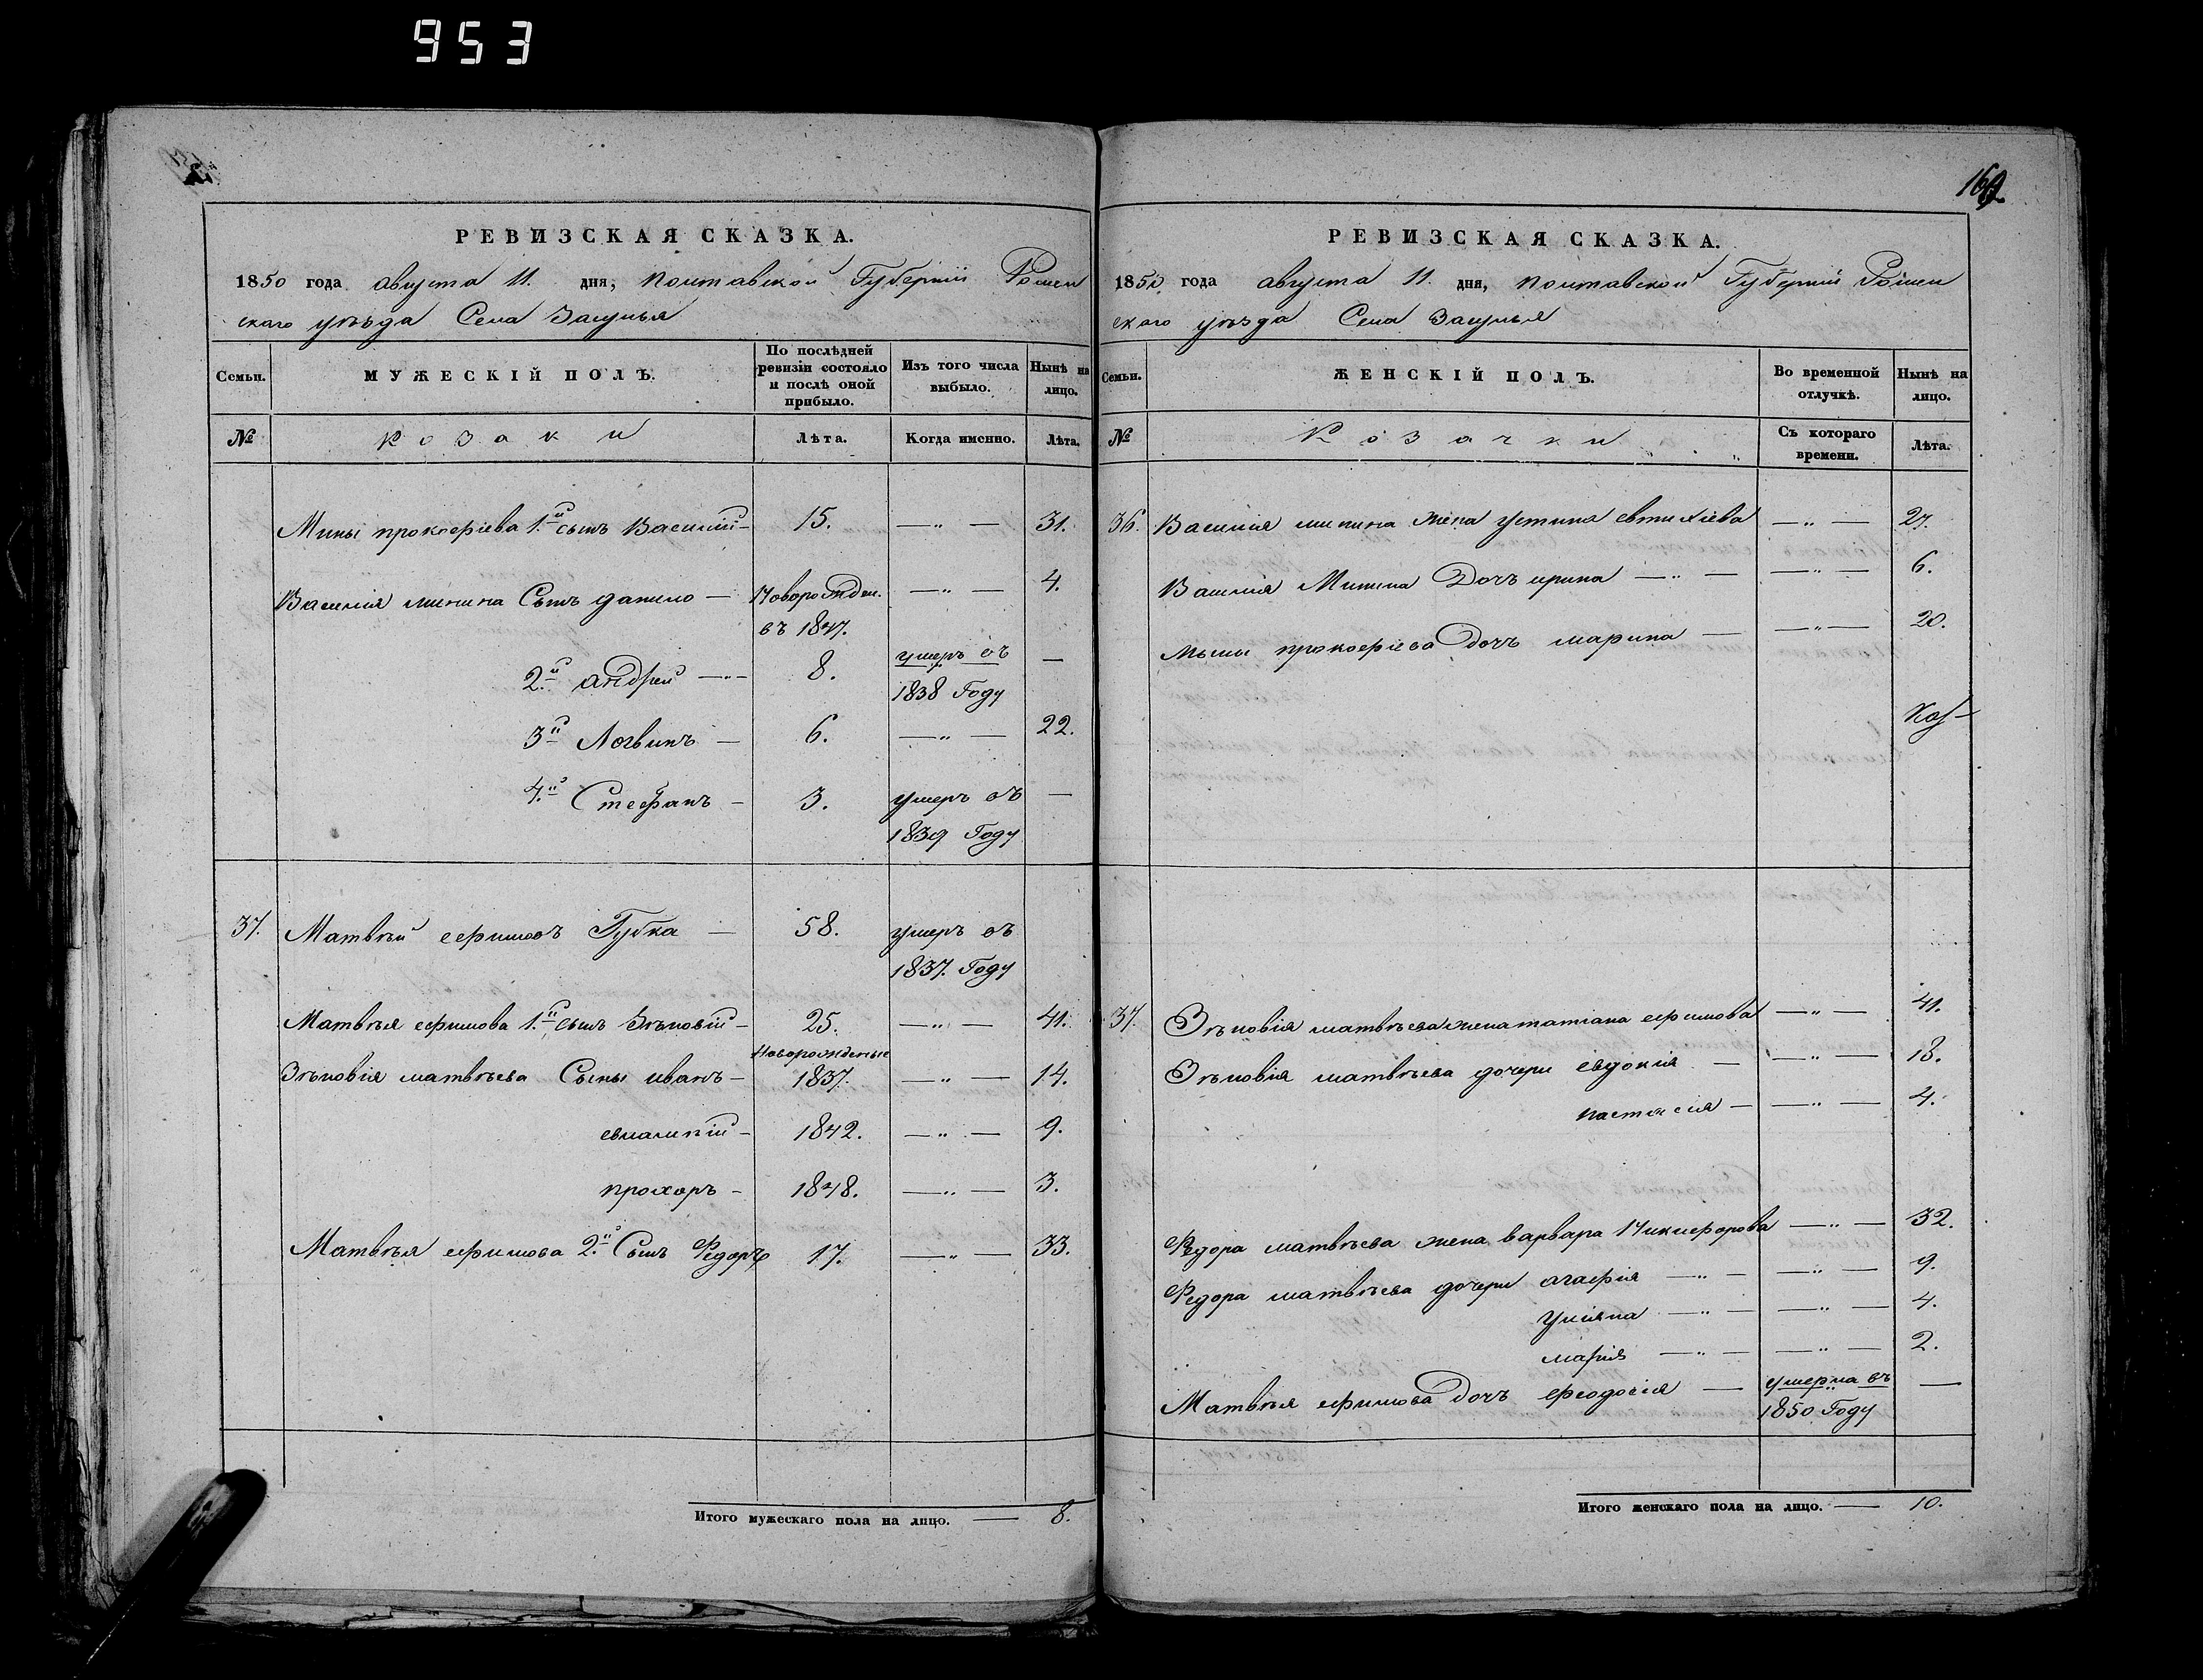 953
169
РЕВИЗСКАЯ СКАЗКА.
1850 года августа 11. дня, Полтавской Губерніи Ромен
скаго уѣзда Села Засулья
Семьи.
МУЖЕСКІЙ ПОЛЪ.
По послѣдней ревизіи состояло и послѣ оной прибыло.
Изъ того числа выбыло.
Нынѣ на лицо.
№ Козаки Лѣта. Когда именно. Лѣта.
Мины прокофіева 1.й сынъ Василій — 15. — „ — 31.
Василія минина Сынъ данило — Новорожден. — „ — 4.
въ 1847.
2.й андрей — „ — 8. умеръ въ —
1838 Году
3й Логвинъ — 6. — „ — 22.
4.й Стефанъ — 3. умеръ въ —
1839 Году
37. Матвѣй ефимовъ Губка — 58. умеръ въ
1837. Году
Матвѣя ефимова 1.й сынъ Зѣновій — 25. — „ — 41.
Новорожденые
Зѣновія матвѣева Сыны иванъ — 1837. — „ — 14.
евлампій — 1842. — „ — 9.
прохоръ — 1848. — „ — 3.
Матвѣя ефимова 2.й Сынъ Федоръ 17. — „ — 33.
Итого мужескаго пола на лицо. — 8.
РЕВИЗСКАЯ СКАЗКА.
1850 года августа 11. дня, Полтавской Губерніи Ромен
скаго уѣзда Села Засулья
Семьи.
ЖЕНСКІЙ ПОЛЪ.
Во временной отлучкѣ.
Нынѣ на лицо.
№ Козачки Съ котораго времени. Лѣта.
36. Василія минина жена устина евтихіева — „ — 27.
Василія Минина Дочь ирина — „ — — „ — 6.
Мины прокофіева Дочь марина — — „ — 20.
37. Зѣновія матвѣева жена татіана ефимова — „ — 41.
Зѣновія матвѣева дочери евдокія — — „ — 18.
настасія — — „ — 4.
Федора матвѣева жена варвара Никифорова — „ — 32.
Федора матвѣева дочери агафія — „ — — „ — 9.
уліяна — „ — — „ — 4.
марія — „ — — „ — 2.
Матвѣя ефимова Дочь феодосія — умерла въ —
1850 Году
Итого женскаго пола на лицо. — 10.